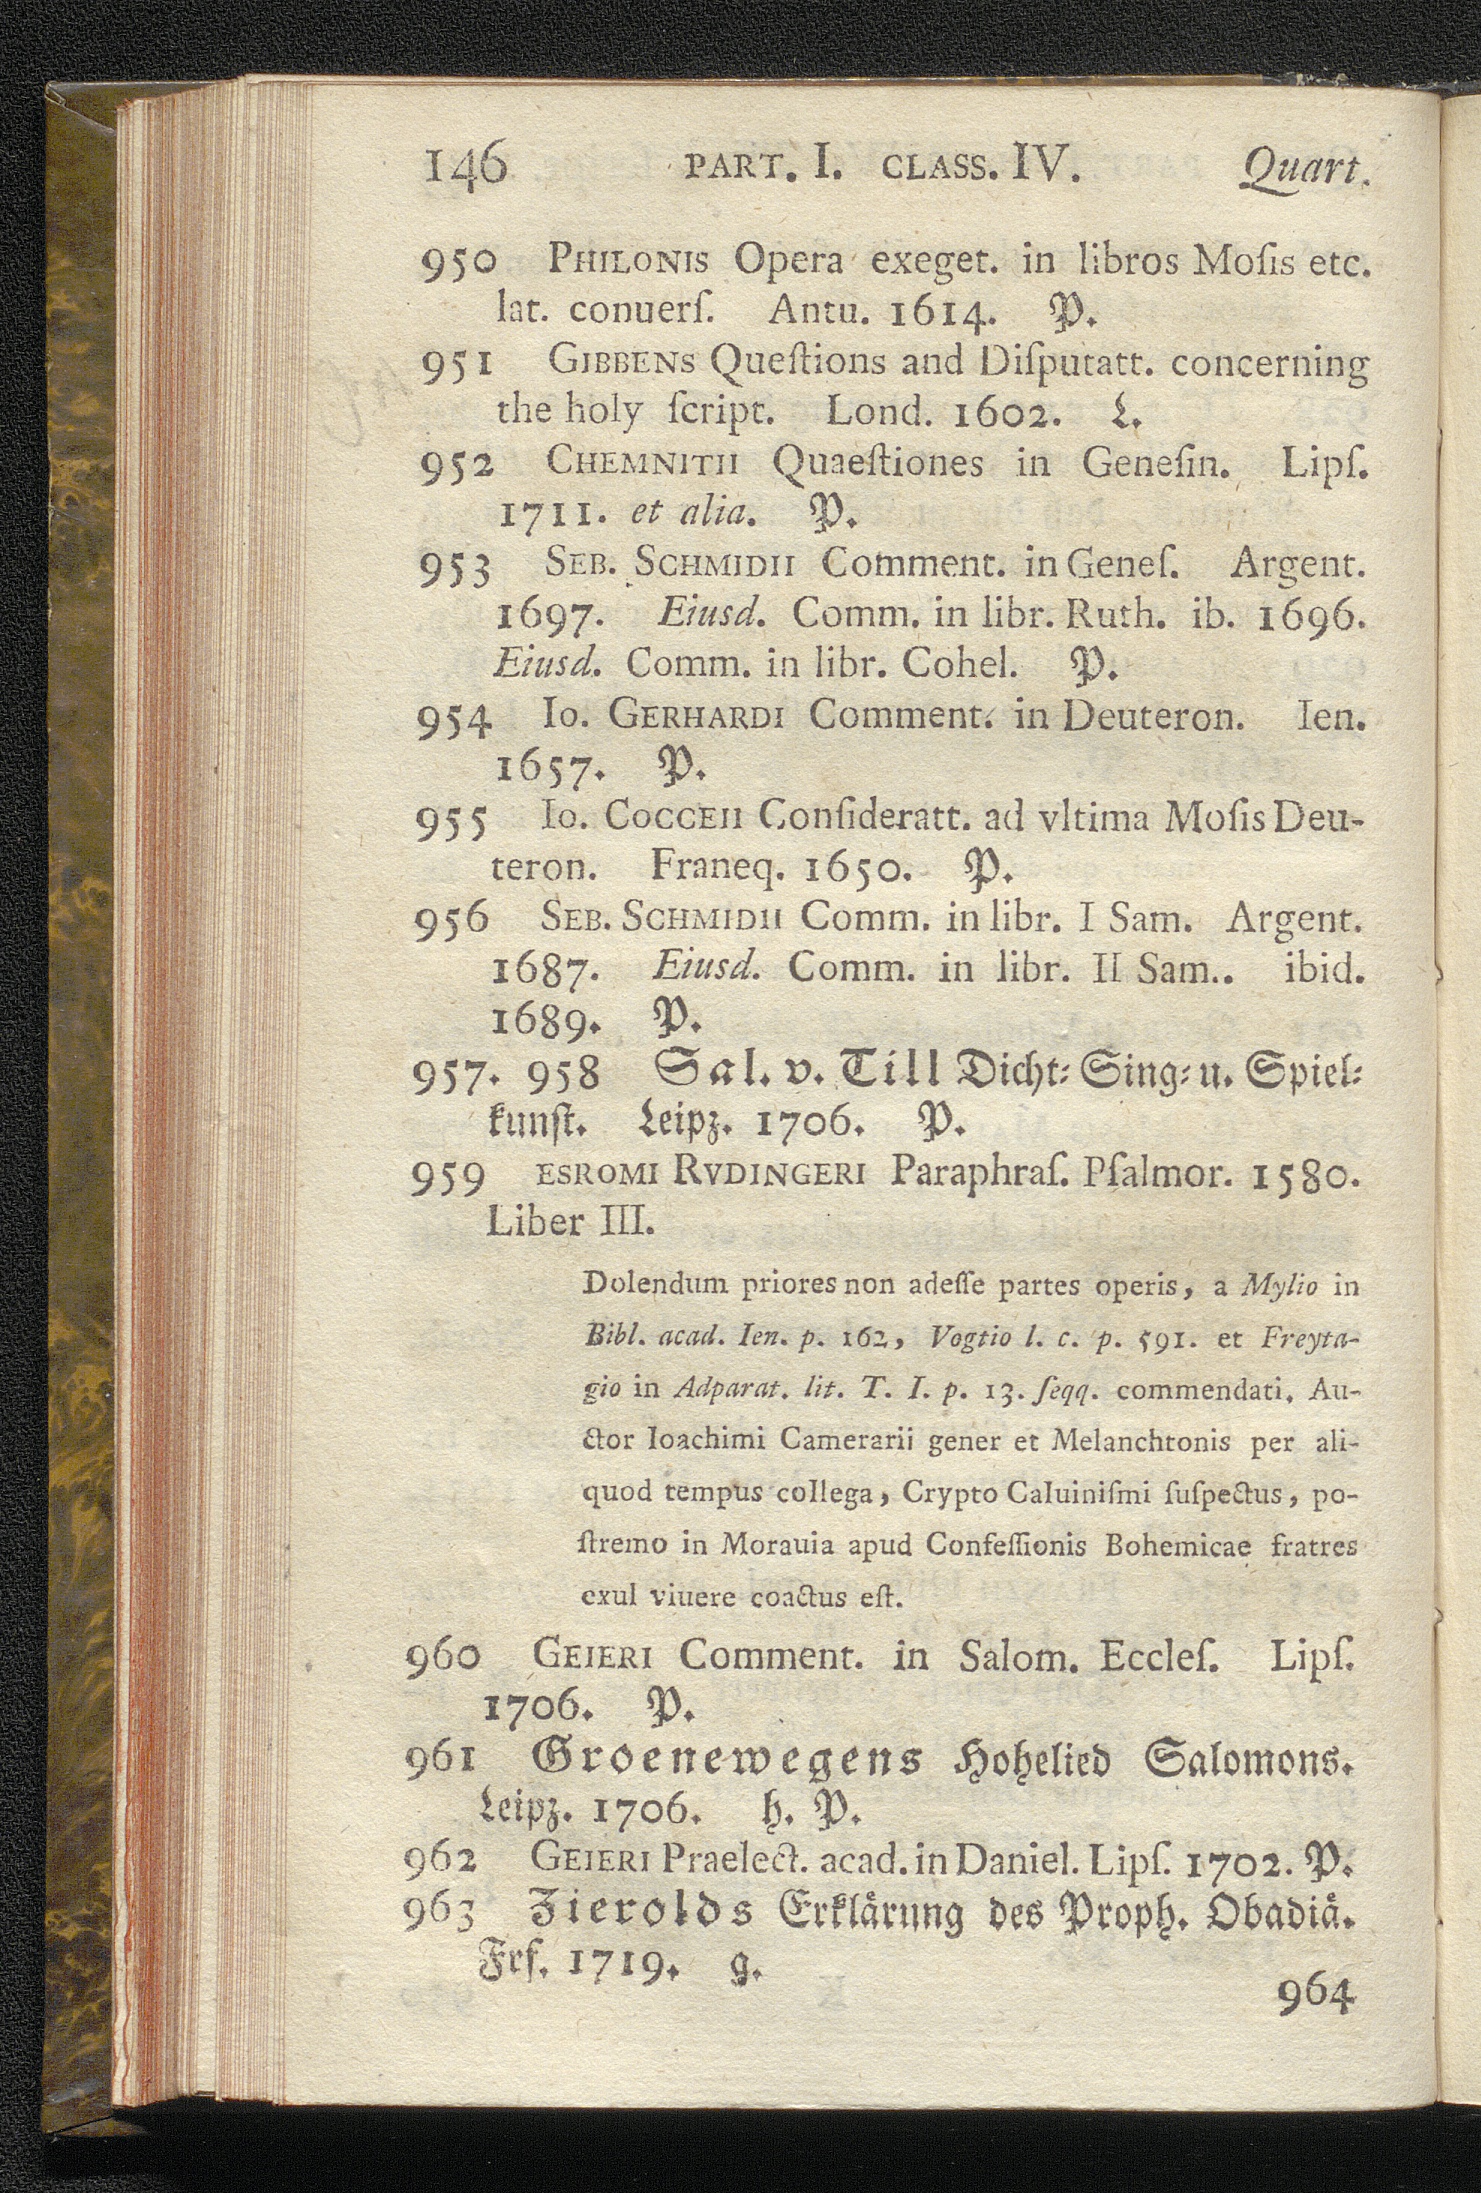 146 PART. I. CLASS. IV. Quart.
950 PHILONIS Opera exeget. in libros Moſis etc.
lat. conuerſ. Antu. 1614. P.
951 GIBBENS Queſtions and Diſputatt. concerning
the holy ſcript. Lond. 1602. L.
952 CHEMNITII Quaeſtiones in Geneſin. Lipſ.
1711. et alia. P.
953 SEB. SCHMIDII Comment. in Geneſ. Argent.
1697. Eiusd. Comm. in libr. Ruth. ib. 1696.
Eiusd. Comm. in libr. Cohel. P.
954 Io. GERHARDI Comment. in Deuteron. Ien.
1657. P.
955 Io. COCCEII Conſideratt. ad vltima Moſis Deu-
teron. Franeq. 1650. P.
956 SEB. SCHMIDII Comm. in libr. I Sam. Argent.
1687. Eiusd. Comm. in libr. II Sam.. ibid.
1689. P.
957. 958 Sal. v. Till Dicht- Sing- u. Spiel-
kunſt. Leipz. 1706. P.
959 ESROMI RVDINGERI Paraphraſ. Pſalmor. 1580.
Liber III.
Dolendum priores non adeſſe partes operis, a Mylio in
Bibl. acad. Ien. p. 162, Vogtio l. c. p. 591. et Freyta-
gio in Adparat. lit. T. I. p. 13. ſeqq. commendati. Au-
ctor Ioachimi Camerarii gener et Melanchtonis per ali-
quod tempus collega, Crypto Caluiniſmi ſuſpectus, po-
ſtremo in Morauia apud Confeſſionis Bohemicae fratres
exul viuere coactus eſt.
960 GEIERI Comment. in Salom. Eccleſ. Lipſ.
1706. P.
961 Groenewegens Hohelied Salomons.
Leipz. 1706. h. P.
962 GEIERI Praelect. acad. in Daniel. Lipſ. 1702. P.
963 Zierolds Erklärung des Proph. Obadiä.
Frf. 1719. g.
964